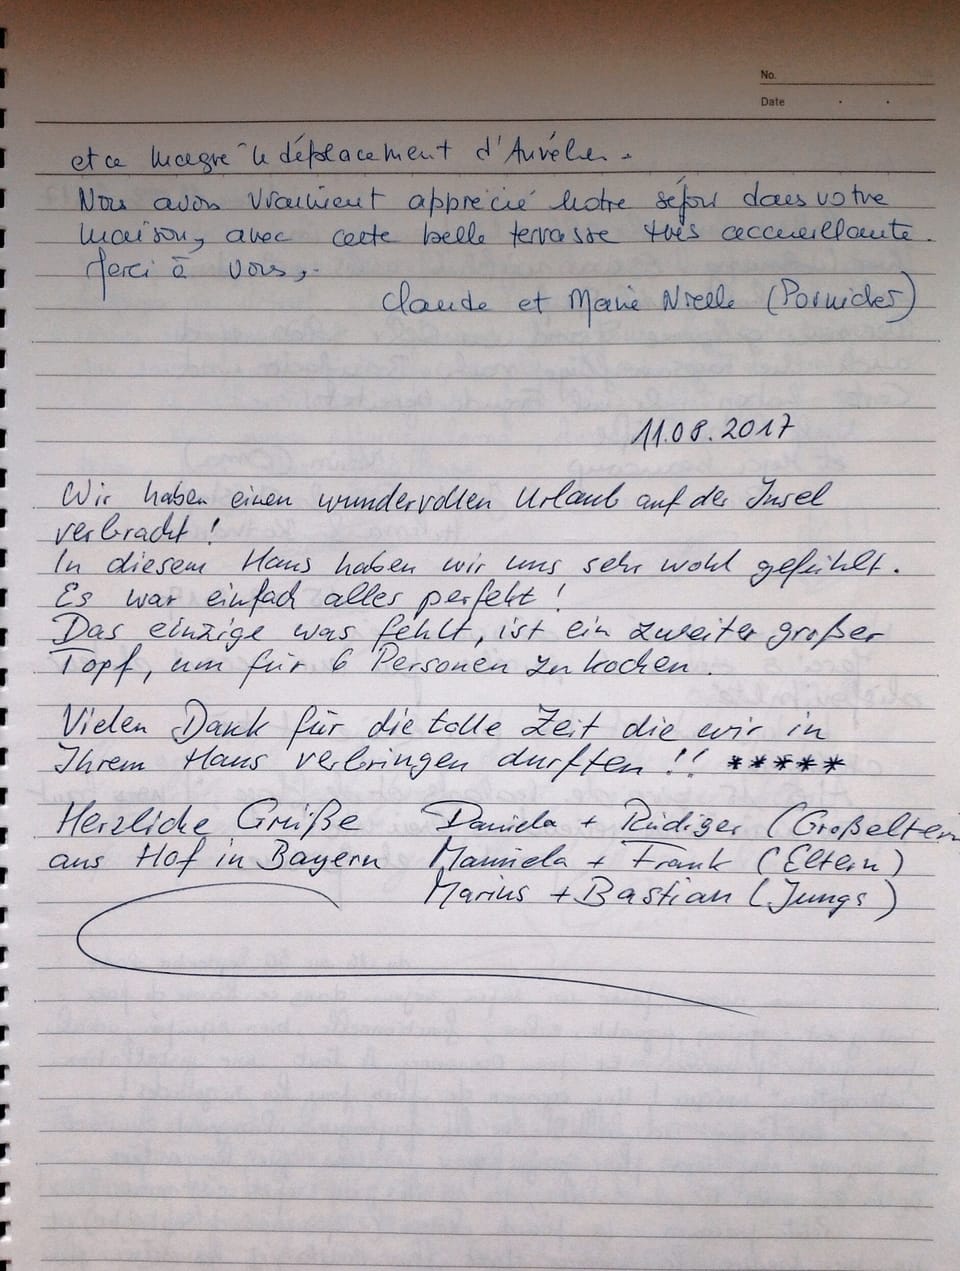 No.
Date
et ce malgré le déplacement d'Aurélien.
Nous avons vraiment apprécié notre séjour dans votre
maison, avec cette belle terrasse très accueillante.
Merci à vous,
Claude et Marie Noelle (Pornichet)
11.08.2017
Wir haben einen wundervollen Urlaub auf der Insel
verbracht!
In diesem Haus haben wir uns sehr wohl gefühlt.
Es war einfach alles perfekt!
Das einzige was fehlt, ist ein zweiter großer
Topf, um für 6 Personen zu kochen.
Vielen Dank für die tolle Zeit die wir in
Ihrem Haus verbringen durften!! *****
Herzliche Grüße Daniela + Rüdiger (Großeltern
aus Hof in Bayern Manuela + Frank (Eltern)
Marius + Bastian (Jungs)